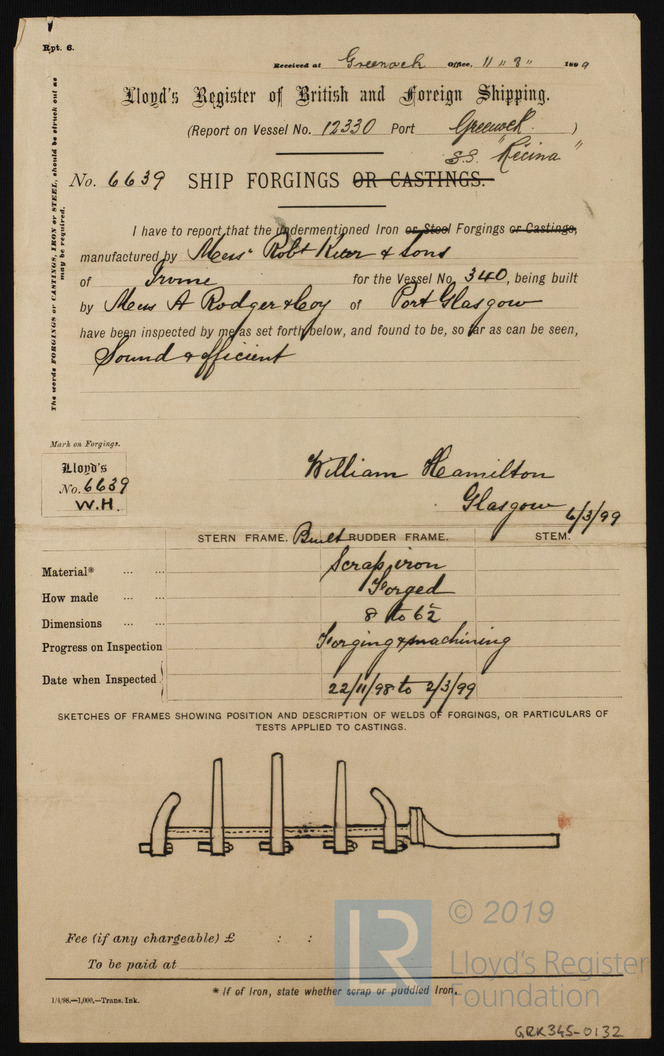 Rpt. 6.
Received at Greenock Office, 11 " 3 " 1899
Lloyd's Register of British and Foreign Shipping.
(Report on Vessel No. 12330 Port Greenock )
S.S. "Recina"
No. 6639 SHIP FORGINGS OR CASTINGS.
I have to report that the undermentioned Iron or Steel Forgings or Castings,
manufactured by Messrs Robt Kerr & Sons
of Irvine for the Vessel No. 340, being built
by Messrs A Rodger & Coy of Port Glasgow
have been inspected by me as set forth below, and found to be, so far as can be seen,
Sound & efficient
The words FORGINGS or CASTINGS, IRON or STEEL, should be struck out as
may be required.
Mark on Forgings.
Lloyd's
No. 6639
W.H.
William Hamilton
Glasgow 6/3/99
STERN FRAME. Built RUDDER FRAME. STEM.
Material* ... ... Scrap iron
How made ... ... Forged
Dimensions ... ... 8 to 6½
Progress on Inspection Forging & machining
Date when Inspected 22/11/98 to 2/3/99
SKETCHES OF FRAMES SHOWING POSITION AND DESCRIPTION OF WELDS OF FORGINGS, OR PARTICULARS OF
TESTS APPLIED TO CASTINGS.
Fee (if any chargeable) £ : :
To be paid at
* If of Iron, state whether scrap or puddled Iron.
1/4/98.—1,000.—Trans. Ink.
LR
© 2019
Lloyd's Register
Foundation
GRK345-0132